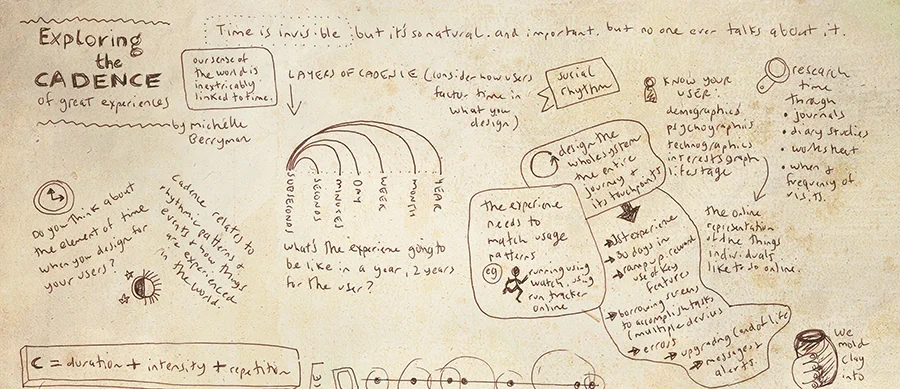 Exploring
the
CADENCE
of great experiences
by michelle
Berryman
Time is invisible but it's so natural. and important. but no one ever talks about it.
our sense of
the world is
inextricably
linked to time.
LAYERS OF CADENCE (consider how users
factor time in
what you
design)
social
rhythm
SUBSECONDS
SECONDS
MINUTES
DAY
WEEK
MONTH
YEAR
what's the experience going to
be like in a year, 2 years
for the user?
Do you think about
the element of time
when you design for
your users?
Cadence relates to
rhythmic patterns of
events & how things
are experienced
in the world.
C = duration + intensity + repetition
design the
whole system
the entire
journey &
its touchpoints
the experience
needs to
match usage
patterns
eg
running using
watch, using
run tracker
online
1st experience
30 days in
ramp up, reward
use of key
features
borrowing screens
to accomplish tasks
(multiple devices
errors
upgrading (end of life
messages &
alerts.
KNOW YOUR
USER:
demographics
psychographics
technographics
interests graph
life stage
the online
representation
of the things
individuals
like to so online.
research
time
through
• journals
• diary studies
• worksheet
• when &
frequency of
We
mold
clay
into